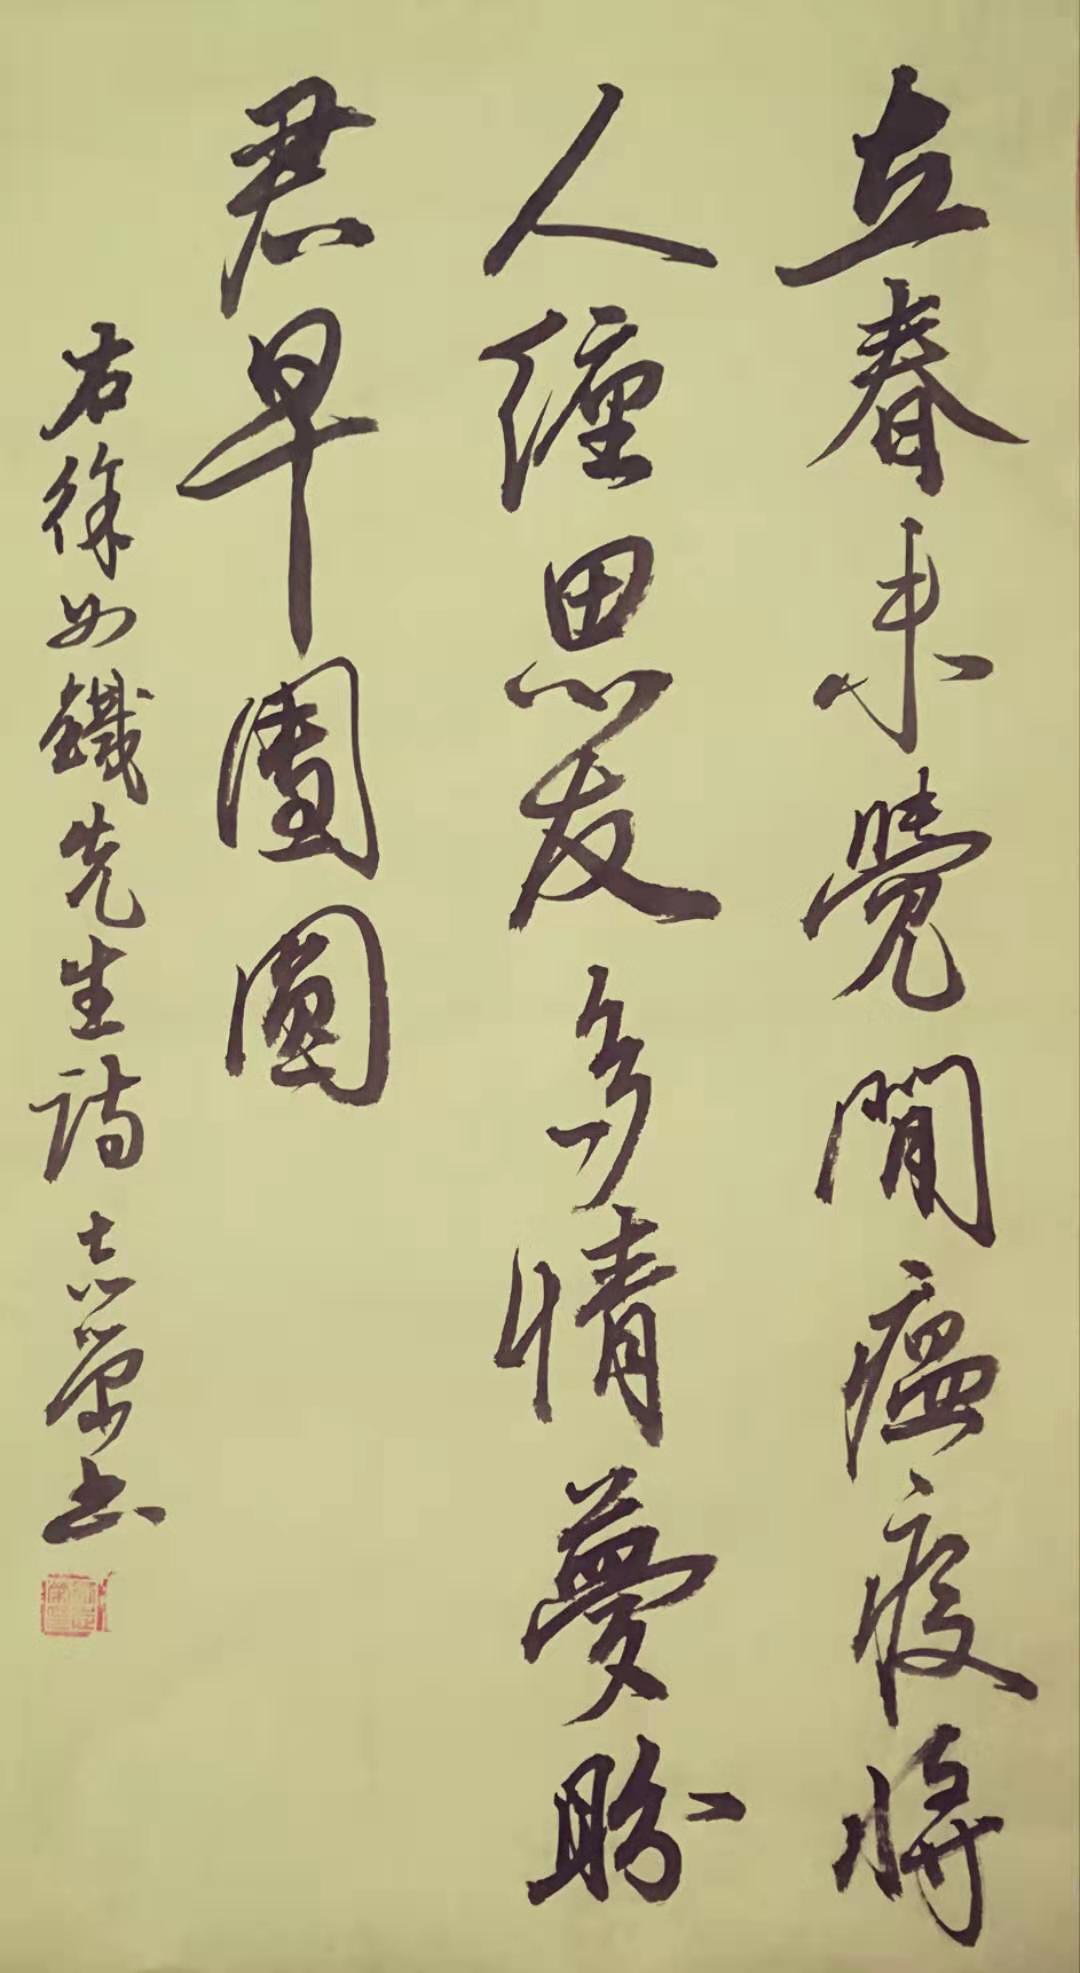 立春未覺閒瘟疫將
人纏思友多情夢盼
君早團圓
右徐如鐵先生詩 志榮書